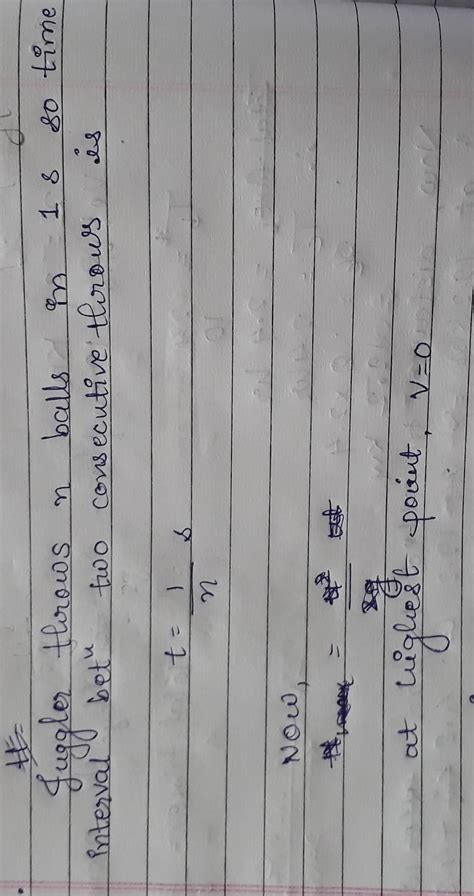 Juggler throws n balls in 1 s so time
interval betⁿ two consecutive throws is
t = 1/n s
Now,
at highest point, v=0